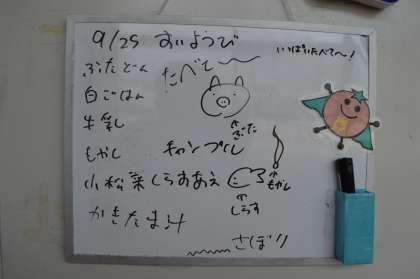 9/25 すいようび
いっぱいたべて〜!
ぶたどん
たべて〜
白ごはん
牛乳
↑ぶた
もやし チャンプル
↑もやし
小松菜しらすあえ
↑しらす
かきたま汁
さぼり